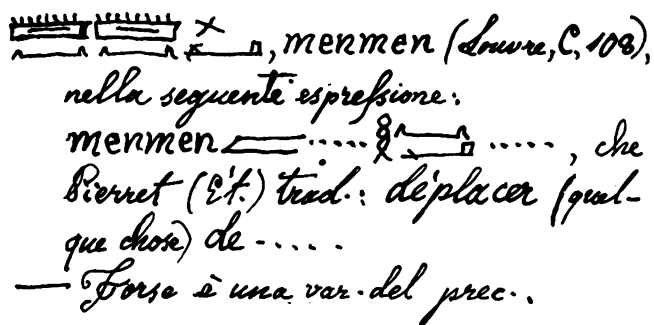 , menmen (Louvre, C, 108),
nella seguente espreſsione:
menmen ..... ....., che
Pierret (Ét.) trad.: déplacer (quel-
que chose) de .....
— Forse è una var. del prec..